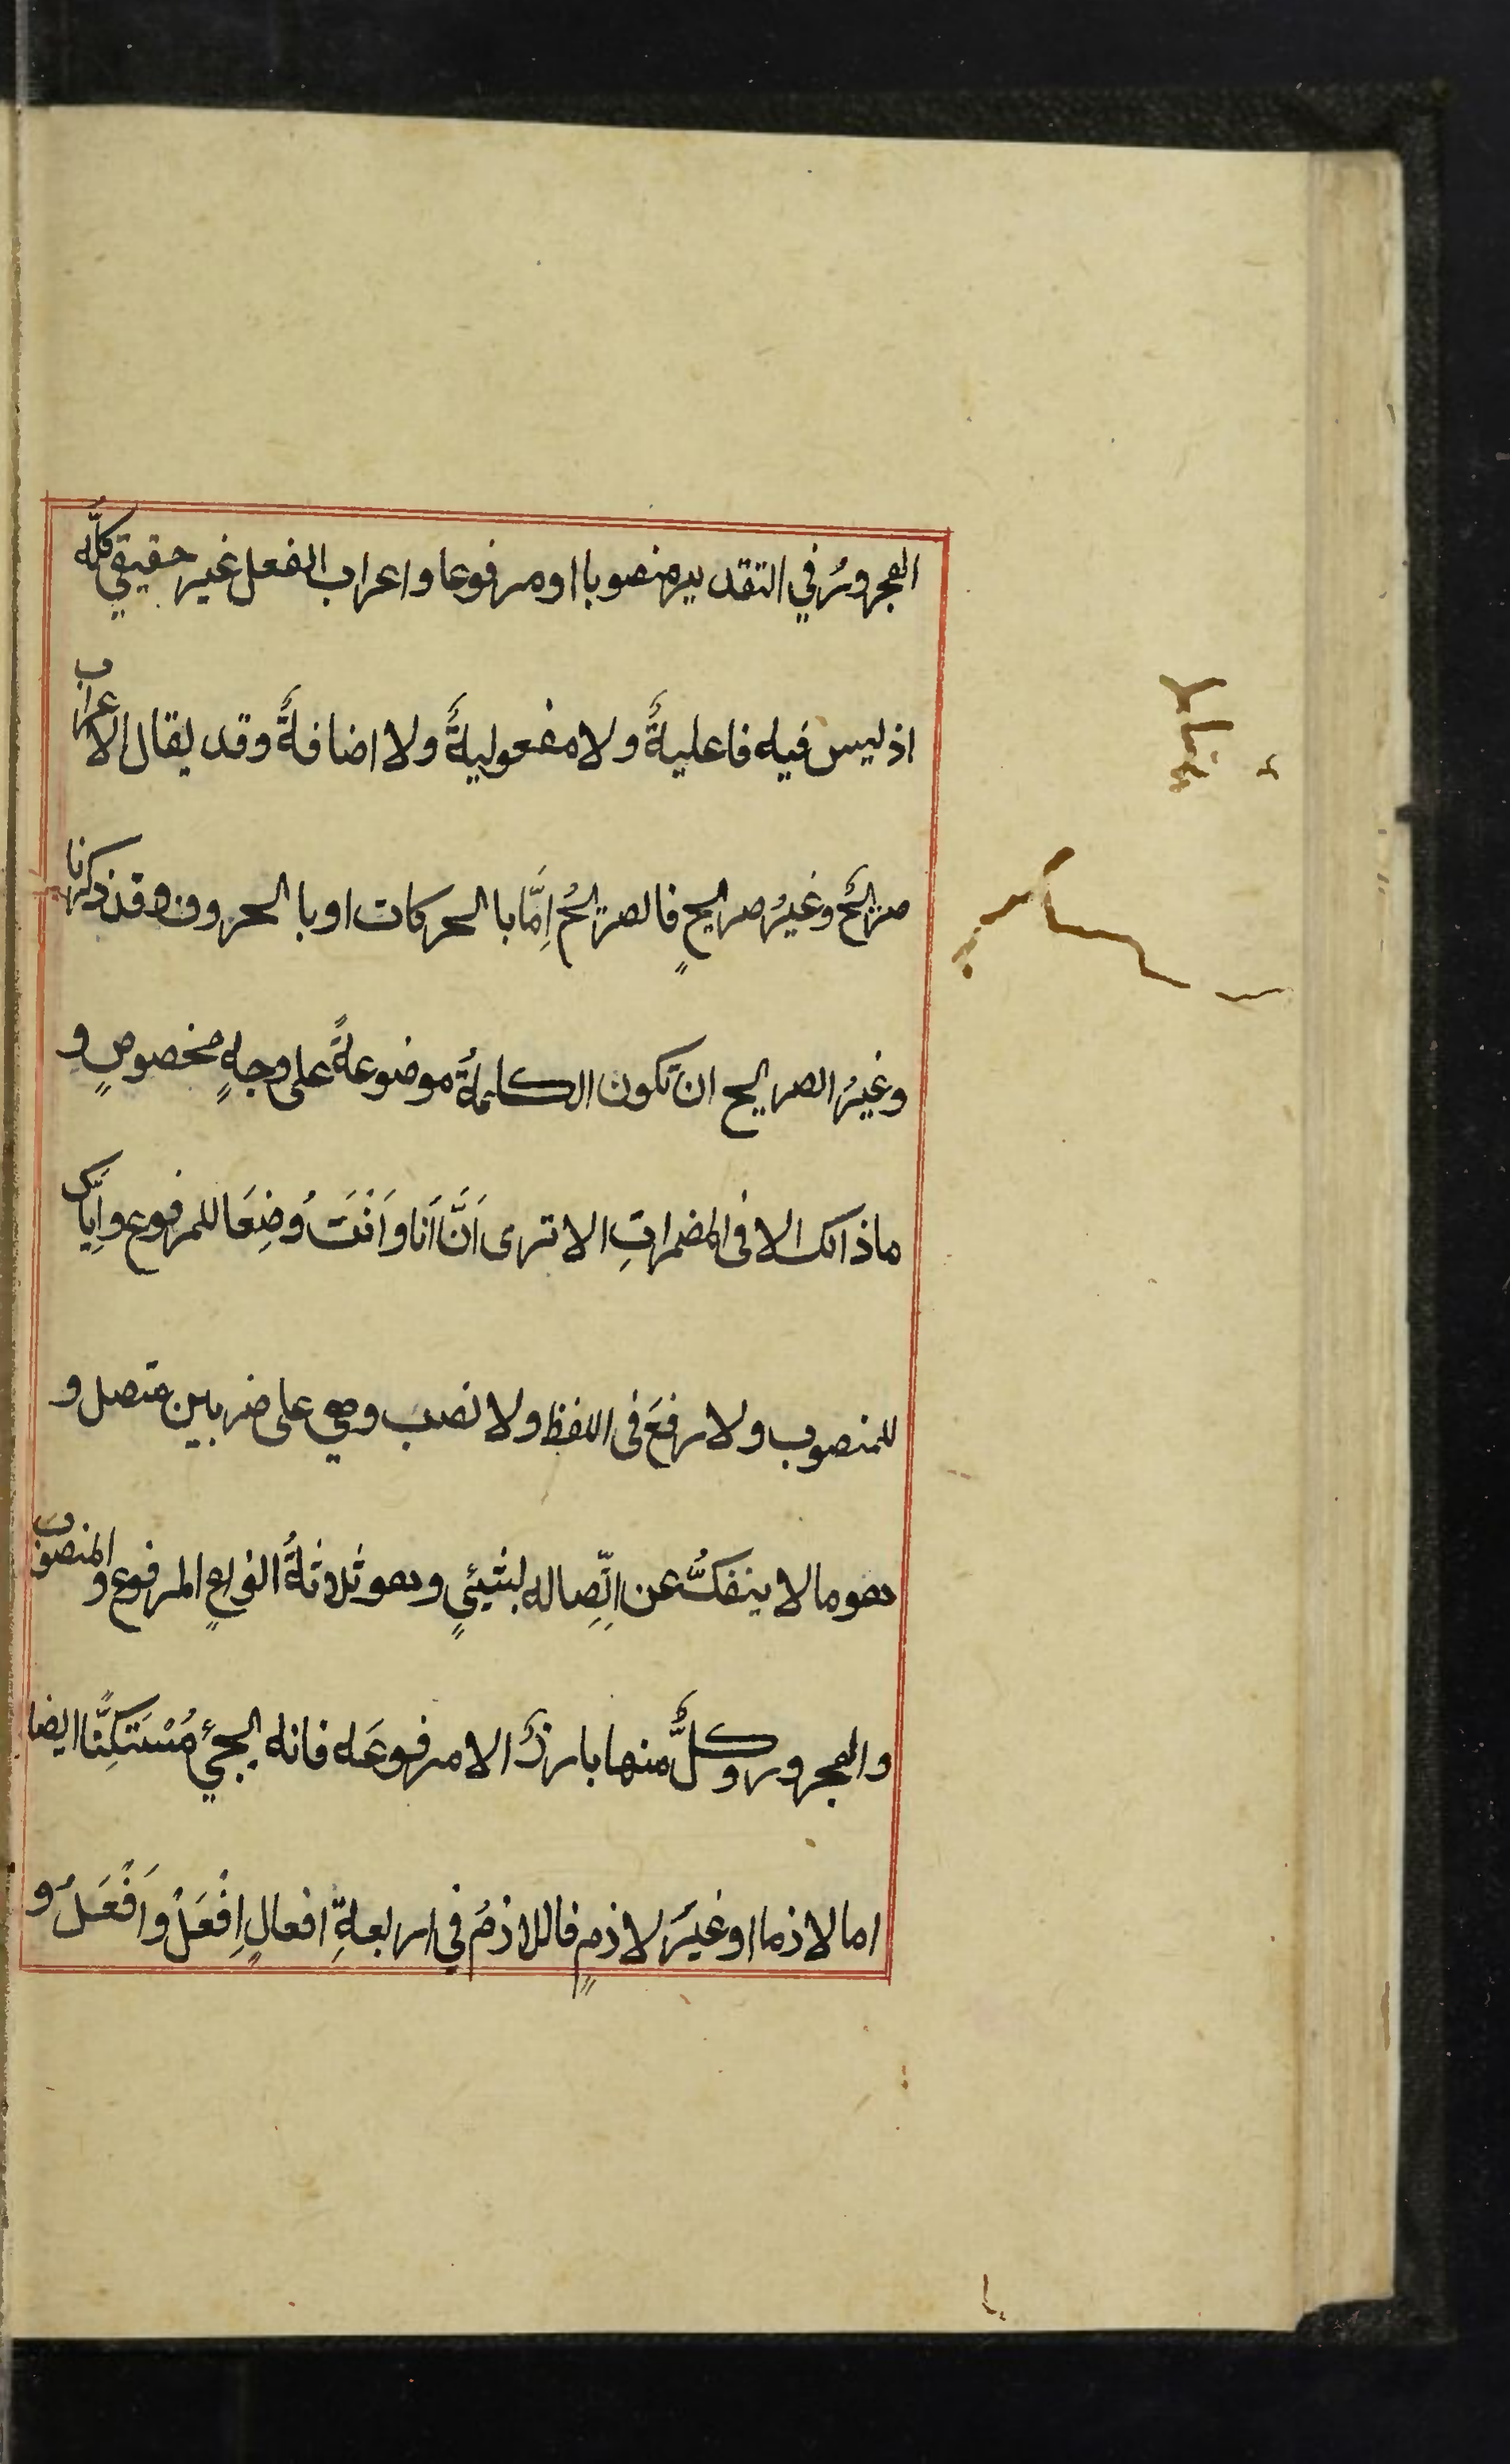 المجرورُ في التقدير منصوبا او مرفوعا واعراب الفعل غير حقيقي كلّه
اذ ليس فيه فاعليةٌ ولا مفعوليةٌ ولا اضافةٌ وقد يقال الاعراب
صريحٌ وغيرُ صريحٍ فالصريحُ اِمَّا بالحركات او بالحروف وقد ذكرنا
وغيرُ الصريح ان تكون الكلمةُ موضوعةً على وجهٍ مخصوصٍ و
ماذالك الا فى المضمراتِ الا ترى اَنَّ اَنا واَنْتَ وُضِعَا للمرفوع واِيَّاك
للمنصوب ولا رفعَ فى اللفظ ولا نصب وهي على ضربين متصل و
هو ما لا ينفكُّ عن اتِّصاله بشيئٍ وهو ثلاثةُ انواعٍ المرفوع والمنصوب
والمجرور وكلٌّ منها بارزٌ الا مرفوعَه فانه يجئ مُسْتَكِنًّا ايضا
اما لازما او غيرَ لازمٍ فاللازمُ في اربعةِ افعالٍ اِفْعَلْ واَفْعَلُ و